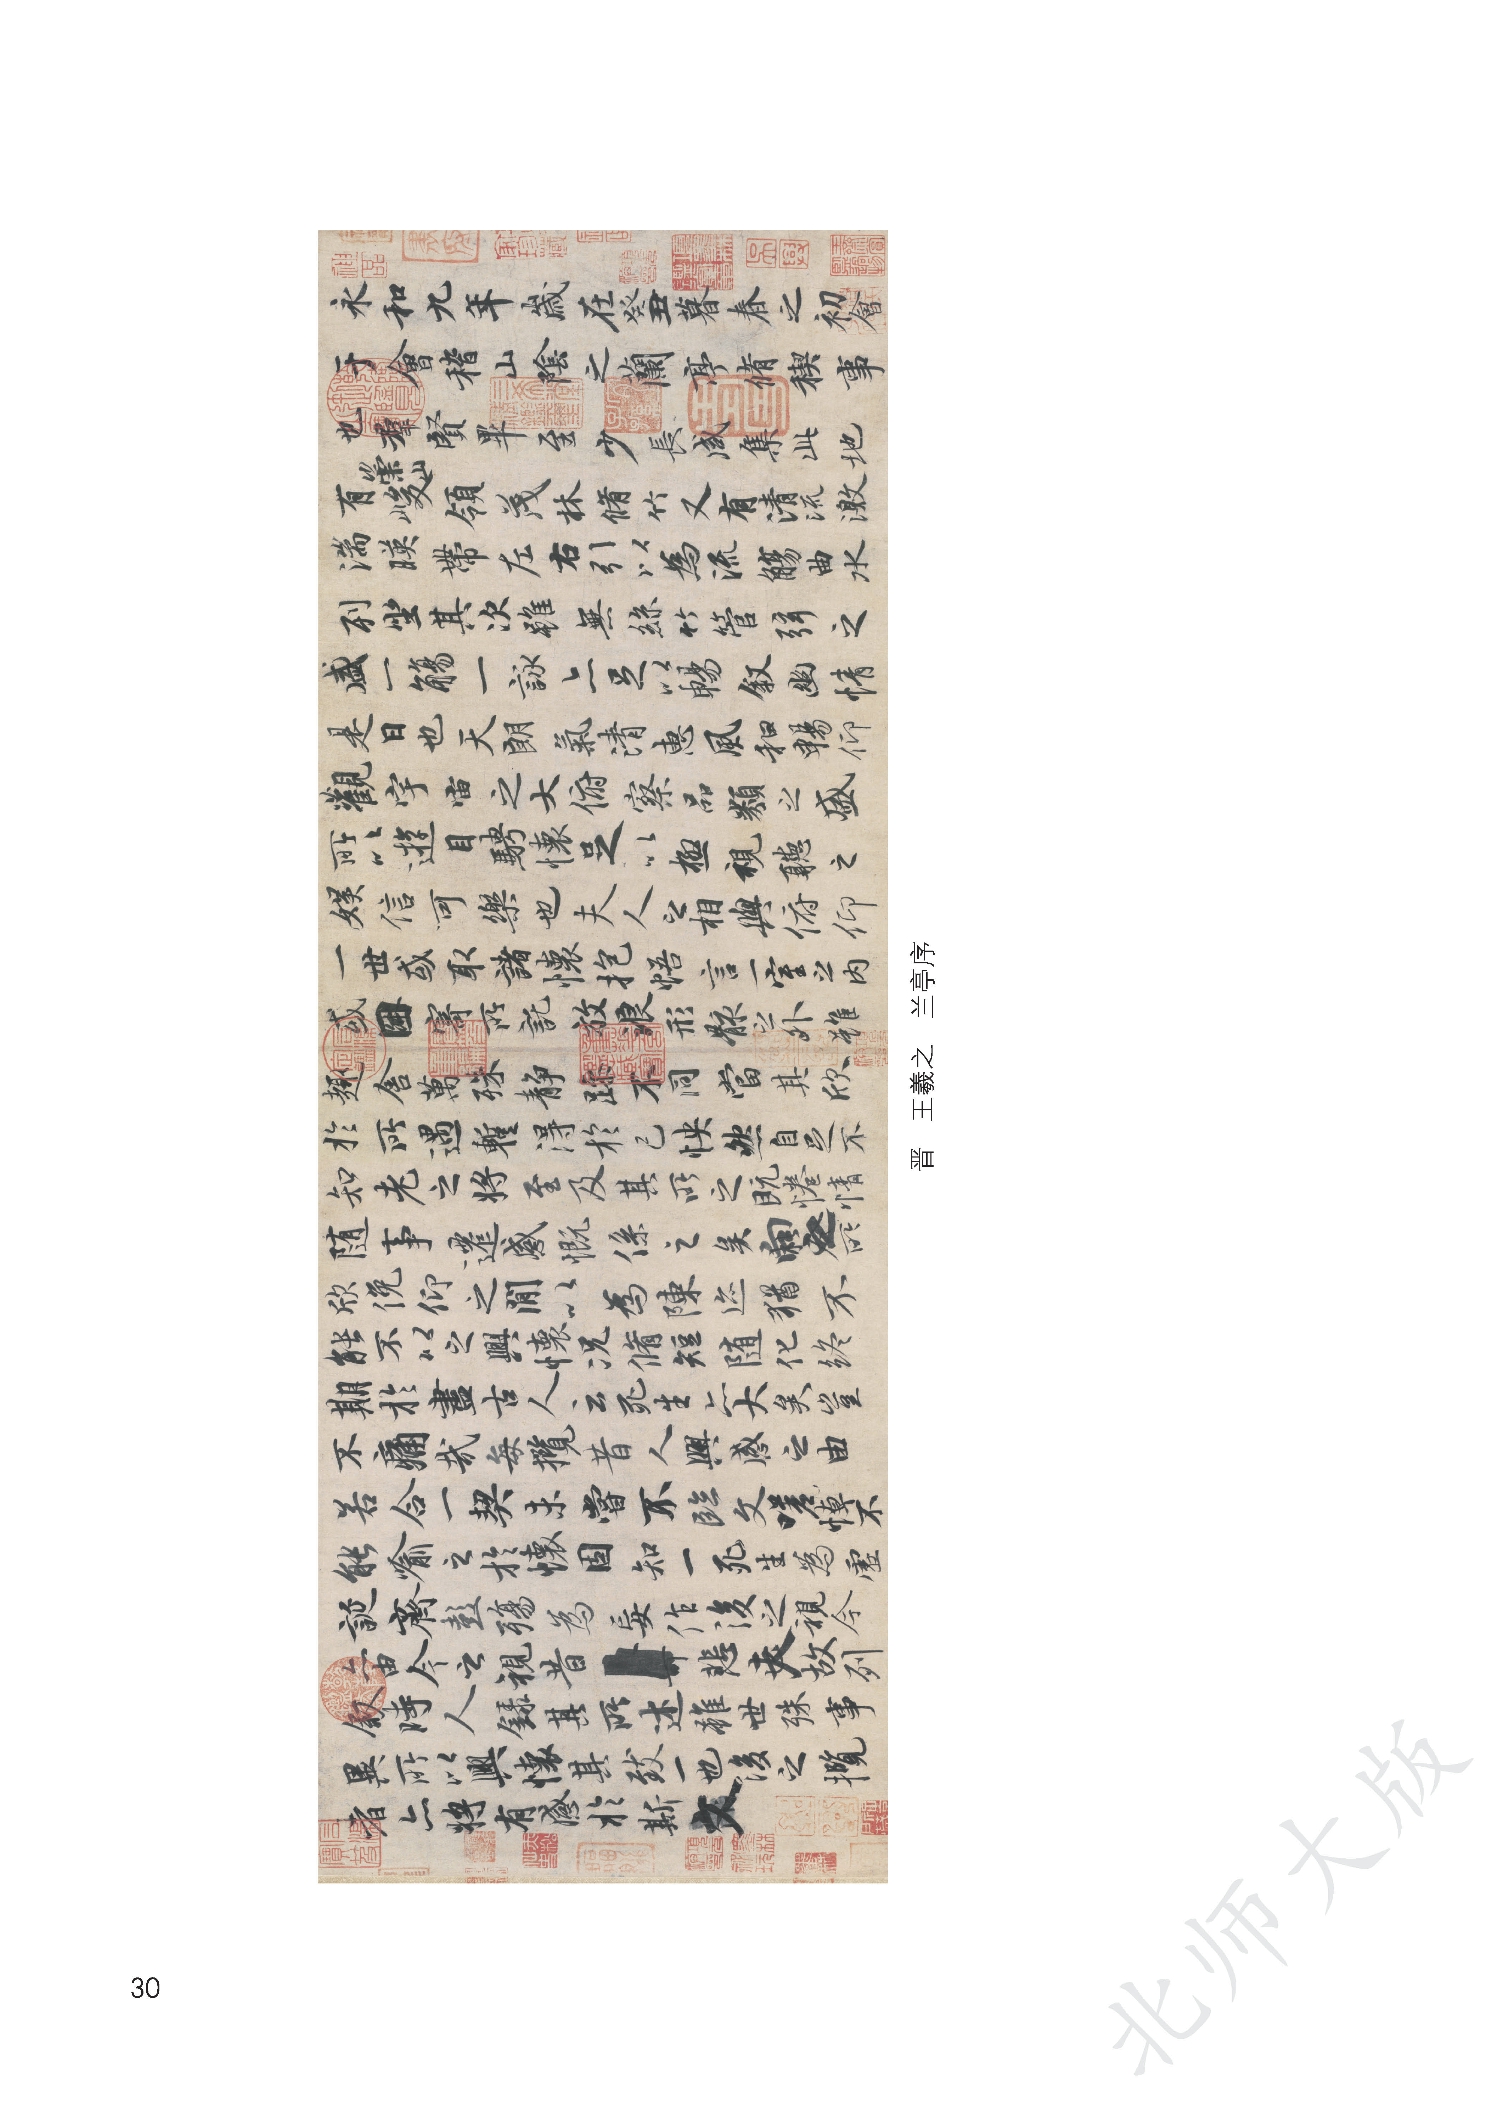 永和九年歲在癸丑暮春之初會
于會稽山陰之蘭亭脩稧事
也羣賢畢至少長咸集此地
有崇山峻領茂林脩竹又有清流激
湍暎帶左右引以為流觴曲水
列坐其次雖無絲竹管弦之
盛一觴一詠亦足以暢敘幽情
是日也天朗氣清惠風和暢仰
觀宇宙之大俯察品類之盛
所以遊目騁懷足以極視聽之
娛信可樂也夫人之相與俯仰
一世或取諸懷抱悟言一室之內
或因寄所託放浪形骸之外雖
趣舍萬殊靜躁不同當其欣
於所遇蹔得於己怏然自足不
知老之將至及其所之既惓情
隨事遷感慨係之矣向之所
欣俛仰之閒以為陳迹猶不
能不以之興懷況脩短隨化終
期於盡古人云死生亦大矣豈
不痛哉每攬昔人興感之由
若合一契未嘗不臨文嗟悼不
能喻之於懷固知一死生為虛
誕齊彭殤為妄作後之視今
亦由今之視昔悲夫故列
敘時人錄其所述雖世殊事
異所以興懷其致一也後之攬
者亦將有感於斯文
晋 王羲之 兰亭序
30
北师大版